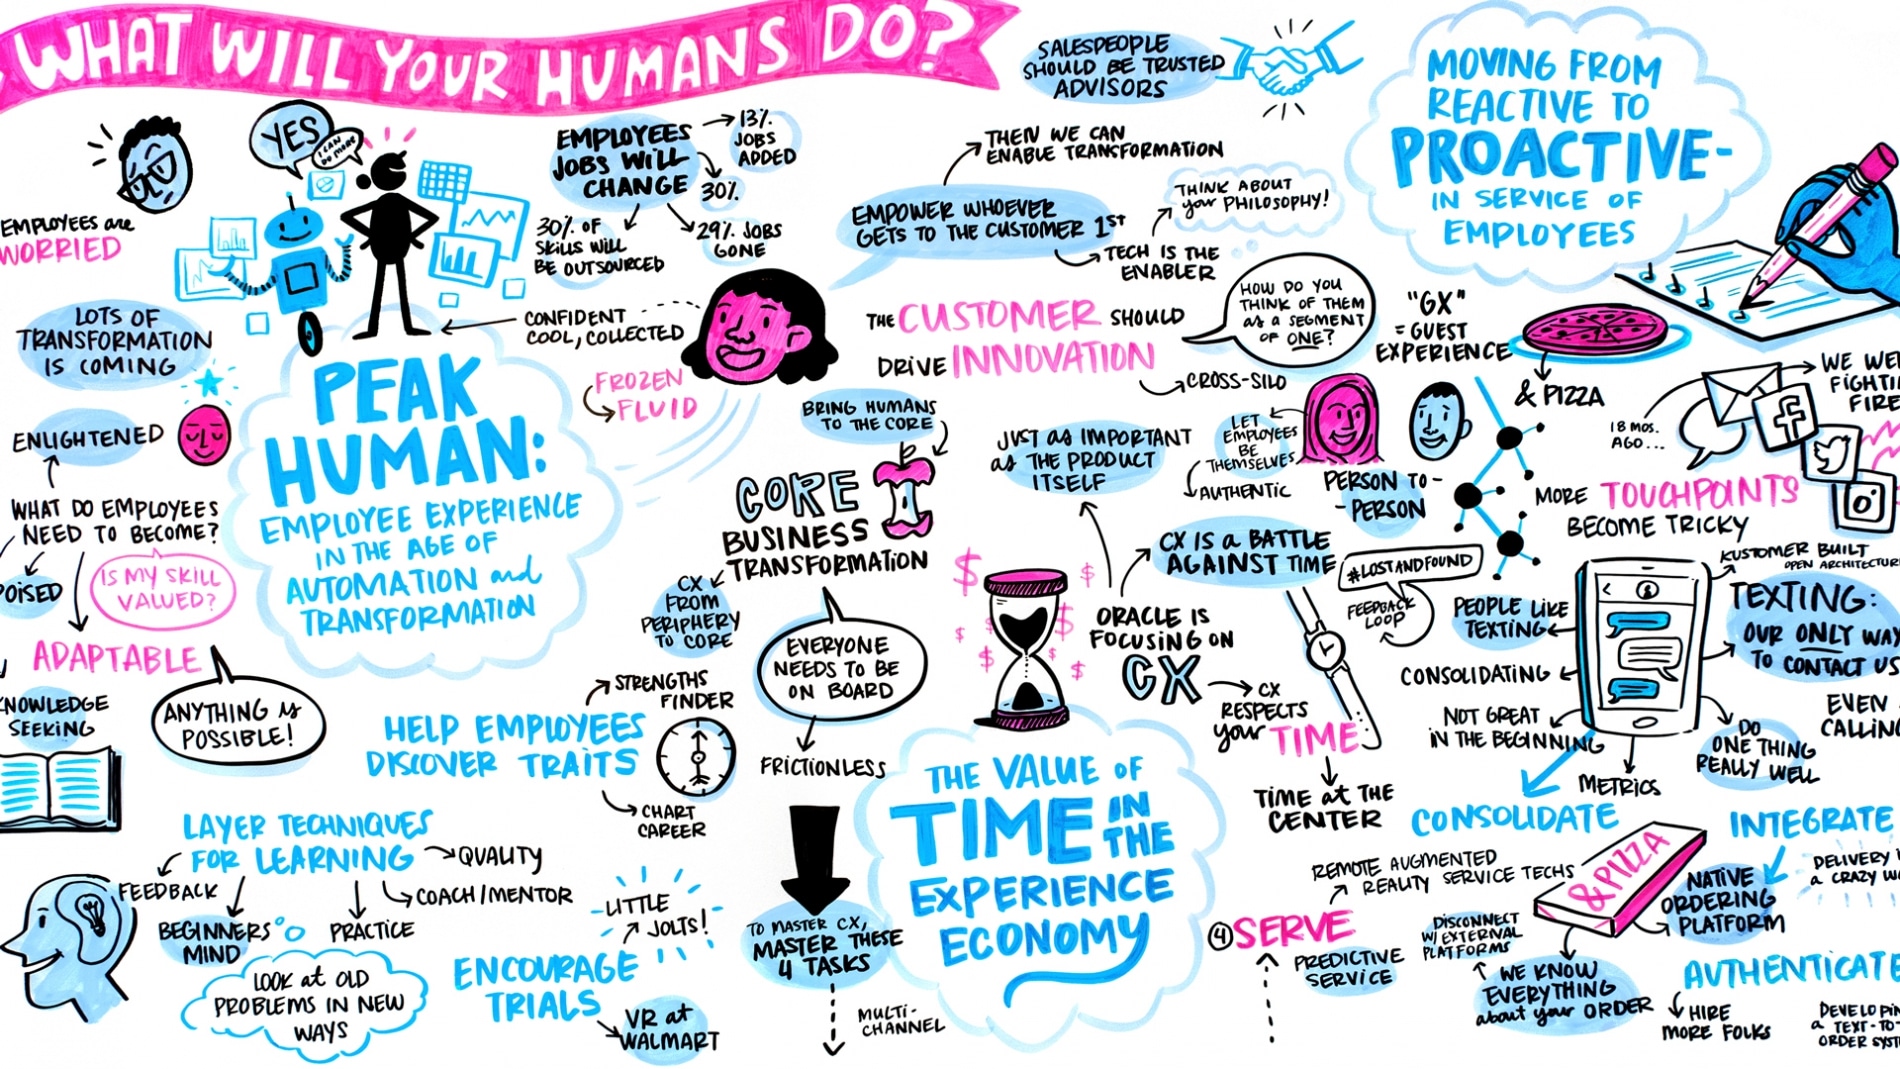 WHAT WILL YOUR HUMANS DO?
YES
I CAN
DO MORE
EMPLOYEES are
WORRIED
LOTS OF
TRANSFORMATION
IS COMING
ENLIGHTENED
WHAT DO EMPLOYEES
NEED TO BECOME?
POISED
IS MY SKILL
VALUED?
ADAPTABLE
KNOWLEDGE
SEEKING
ANYTHING is
POSSIBLE!
EMPLOYEES
JOBS WILL
CHANGE
13%
JOBS
ADDED
30%
29% JOBS
GONE
30% OF
SKILLS WILL
BE OUTSOURCED
CONFIDENT
COOL, COLLECTED
FROZEN
FLUID
PEAK
HUMAN:
EMPLOYEE EXPERIENCE
IN THE AGE OF
AUTOMATION and
TRANSFORMATION
HELP EMPLOYEES
DISCOVER TRAITS
STRENGTHS
FINDER
CHART
CAREER
LAYER TECHNIQUES
FOR LEARNING
FEEDBACK
BEGINNERS
MIND
PRACTICE
COACH/MENTOR
QUALITY
LOOK at OLD
PROBLEMS IN NEW
WAYS
ENCOURAGE
TRIALS
LITTLE
JOLTS!
VR at
WALMART
SALESPEOPLE
SHOULD BE TRUSTED
ADVISORS
THEN WE CAN
ENABLE TRANSFORMATION
EMPOWER WHOEVER
GETS TO THE CUSTOMER 1ST
THINK ABOUT
your PHILOSOPHY!
TECH IS THE
ENABLER
THE CUSTOMER SHOULD
DRIVE INNOVATION
HOW DO YOU
THINK OF THEM
as a SEGMENT
OF ONE?
CROSS-SILO
BRING HUMANS
TO THE CORE
CORE
BUSINESS
TRANSFORMATION
CX
FROM
PERIPHERY
TO CORE
EVERYONE
NEEDS TO BE
ON BOARD
FRICTIONLESS
TO MASTER CX,
MASTER THESE
4 TASKS
MULTI-
CHANNEL
JUST as IMPORTANT
as THE PRODUCT
ITSELF
LET
EMPLOYEES
BE
THEMSELVES
AUTHENTIC
PERSON TO-
-PERSON
CX IS a BATTLE
AGAINST TIME
ORACLE IS
FOCUSING ON
CX
CX
RESPECTS
your TIME
TIME at THE
CENTER
THE VALUE OF
TIME IN
THE
EXPERIENCE
ECONOMY
4 SERVE
REMOTE AUGMENTED
REALITY SERVICE TECHS
PREDICTIVE
SERVICE
MOVING FROM
REACTIVE TO
PROACTIVE-
IN SERVICE OF
EMPLOYEES
"GX"
= GUEST
EXPERIENCE
& PIZZA
18 MOS.
AGO...
FIRE
MORE TOUCHPOINTS
BECOME TRICKY
#LOSTANDFOUND
FEEDBACK
LOOP
PEOPLE LIKE
TEXTING
CONSOLIDATING
NOT GREAT
IN THE BEGINNING
METRICS
KUSTOMER BUILT
OPEN ARCHITECTURE
TEXTING:
OUR ONLY WAY
TO CONTACT US
EVEN
CALLING
DO
ONE THING
REALLY WELL
CONSOLIDATE
INTEGRATE
& PIZZA
NATIVE
ORDERING
PLATFORM
DELIVERY
a CRAZY
DISCONNECT
W/ EXTERNAL
PLATFORMS
WE KNOW
EVERYTHING
about your ORDER
AUTHENTICATE
HIRE
MORE FOLKS
a TEXT-TO-